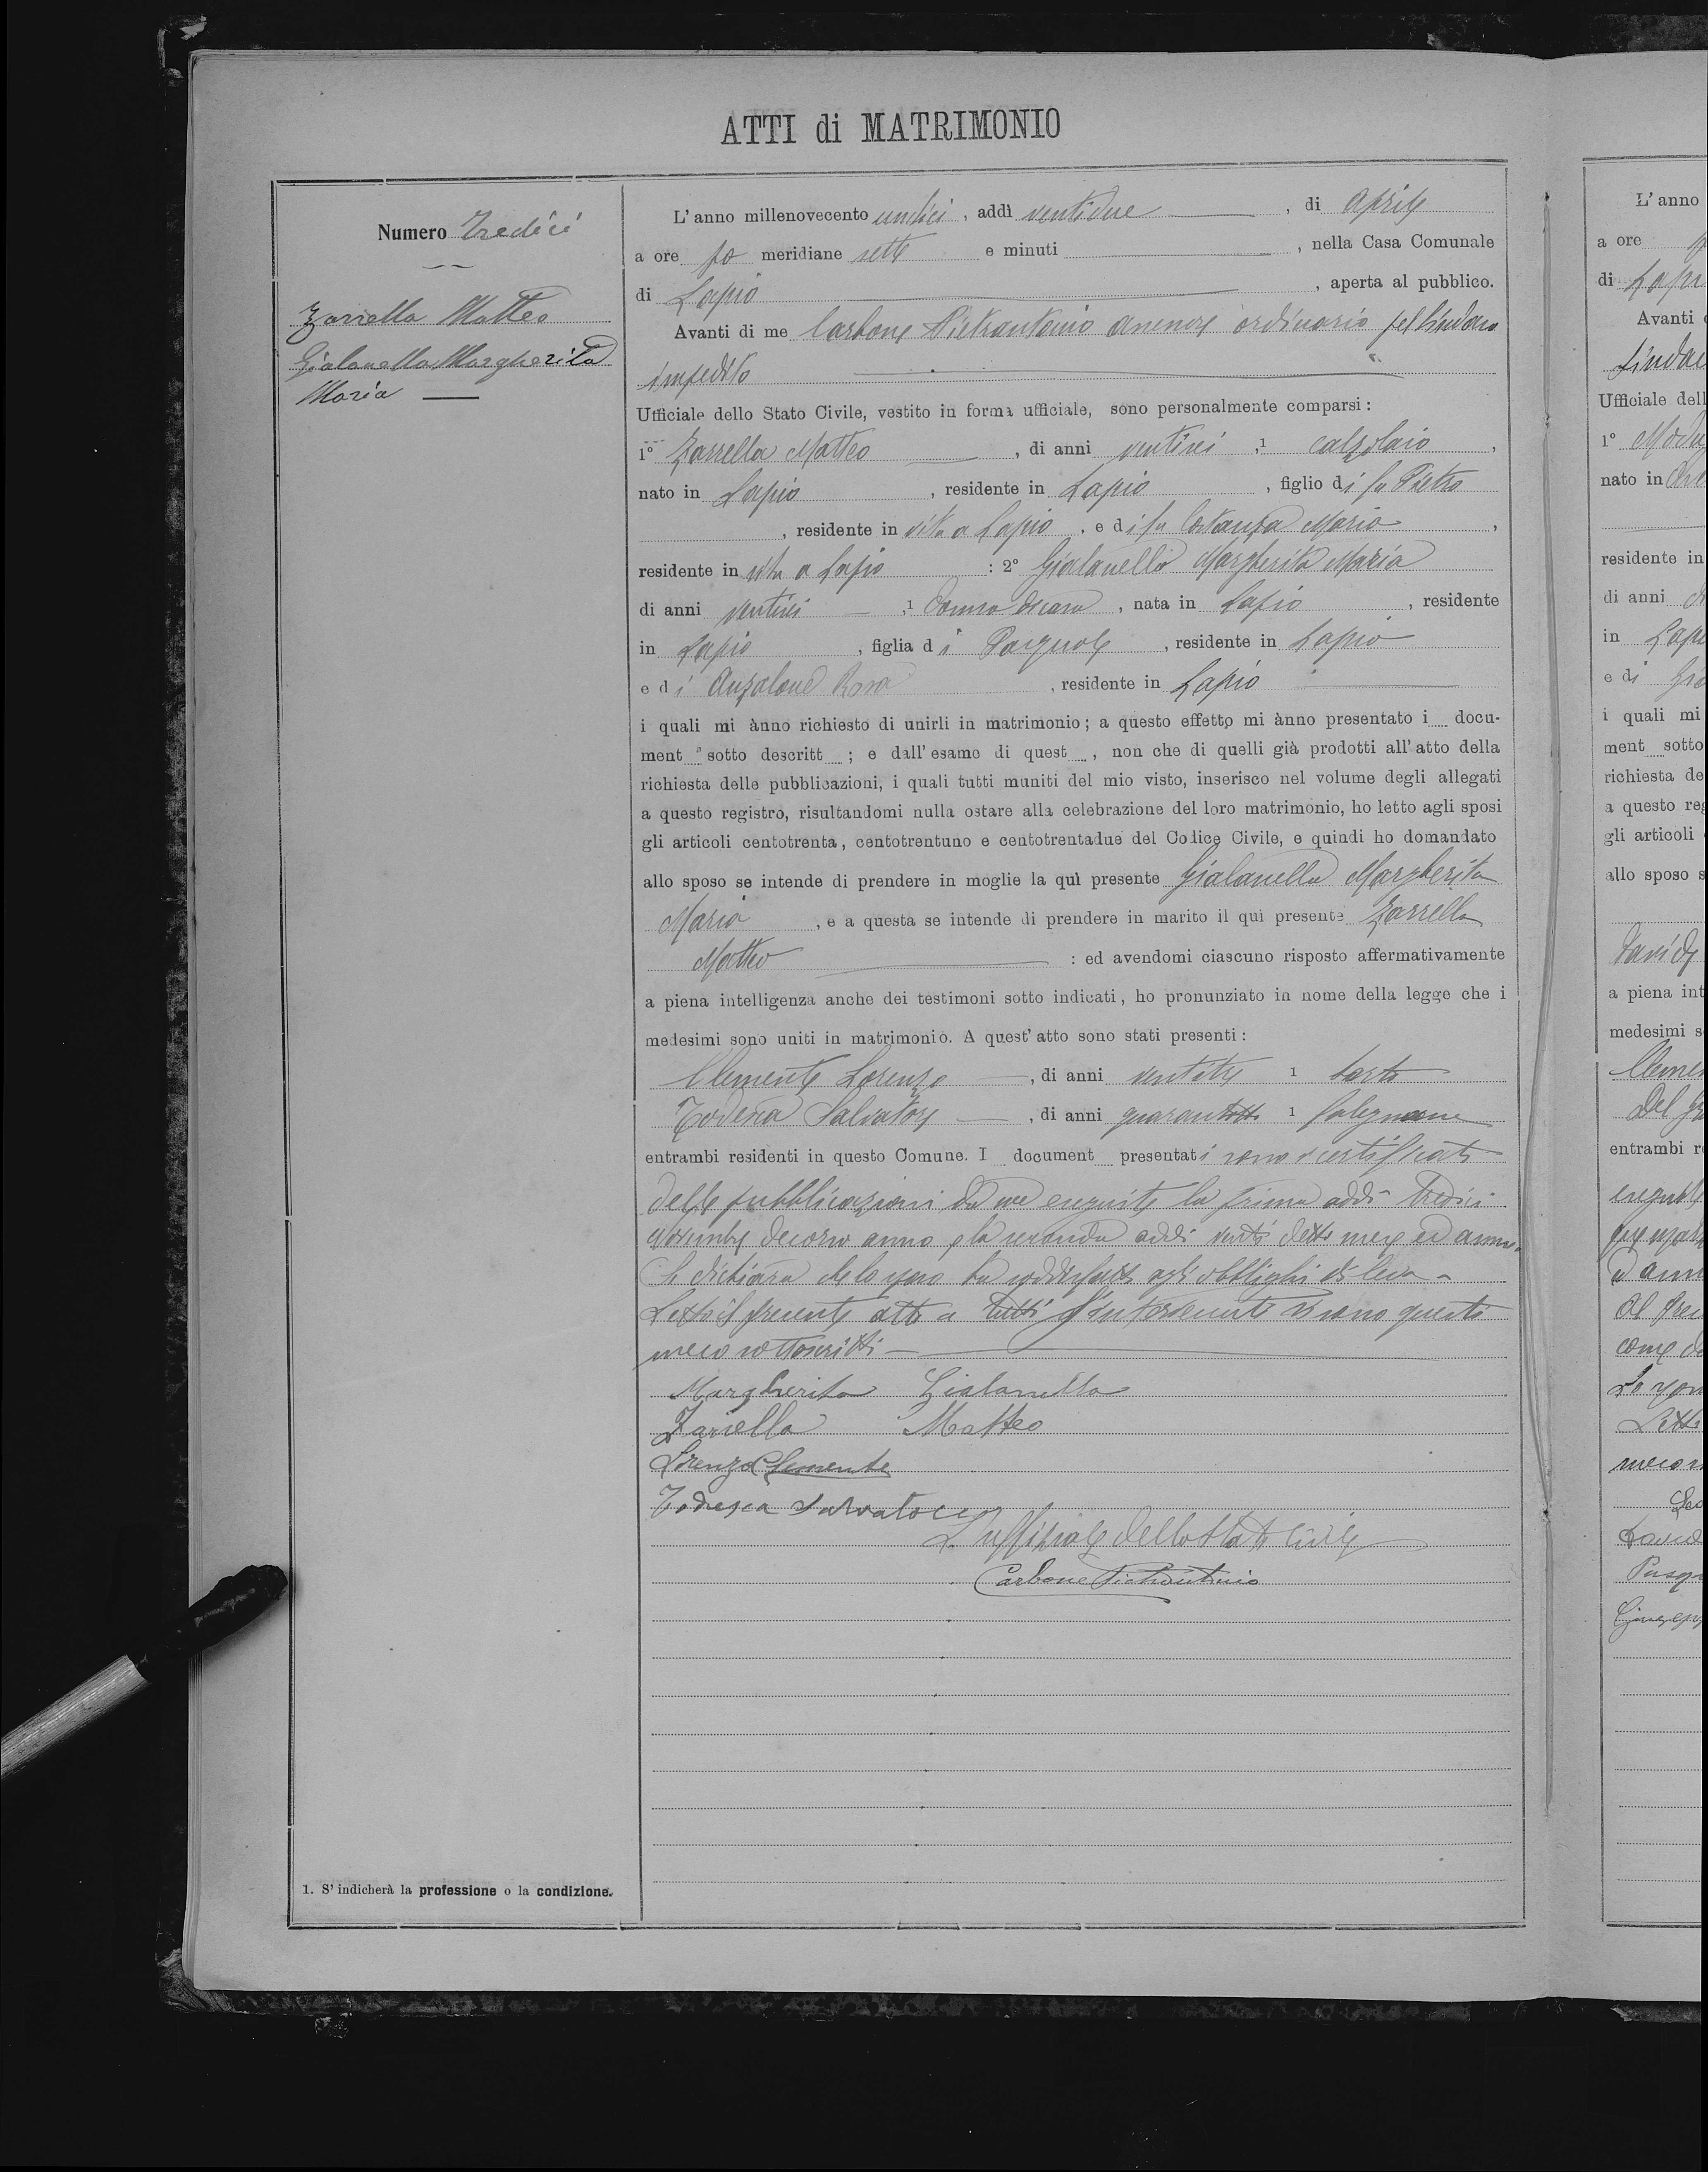 ATTI di MATRIMONIO
Numero Tredici
Zarrella Matteo
Gialanella Margherita
Maria
L'anno millenovecento undici, addì ventidue, di Aprile
a ore po meridiane sette e minuti, nella Casa Comunale
di Lapio, aperta al pubblico.
Avanti di me Carbone Pietrantonio assessore ordinario pel Sindaco
impedito
Ufficiale dello Stato Civile, vestito in forma ufficiale, sono personalmente comparsi:
1° Zarrella Matteo, di anni ventisei, 1 calzolaio,
nato in Lapio, residente in Lapio, figlio di fu Pietro
, residente in vita a Lapio, e di fu Costanza Maria,
residente in vita a Lapio: 2° Gialanella Margherita Maria
di anni ventisei, 1 donna di casa, nata in Lapio, residente
in Lapio, figlia di Pasquale, residente in Lapio
e di Anzalone Rosa, residente in Lapio
i quali mi ànno richiesto di unirli in matrimonio; a questo effetto mi ànno presentato i docu-
ment sotto descritt; e dall'esame di quest, non che di quelli già prodotti all'atto della
richiesta delle pubblicazioni, i quali tutti muniti del mio visto, inserisco nel volume degli allegati
a questo registro, risultandomi nulla ostare alla celebrazione del loro matrimonio, ho letto agli sposi
gli articoli centotrenta, centotrentuno e centotrentadue del Codice Civile, e quindi ho domandato
allo sposo se intende di prendere in moglie la quì presente Gialanella Margherita
Maria, e a questa se intende di prendere in marito il quì presente Zarrella
Matteo: ed avendomi ciascuno risposto affermativamente
a piena intelligenza anche dei testimoni sotto indicati, ho pronunziato in nome della legge che i
medesimi sono uniti in matrimonio. A quest'atto sono stati presenti:
Clemente Lorenzo, di anni ventitre 1 sarto
Todesca Salvatore, di anni quarantotto 1 falegname
entrambi residenti in questo Comune. I document presentati sono i certificati
delle pubblicazioni da me eseguite la prima addì tredici
Novembre decorso anno e la seconda addì venti detto mese ed anno.
Si dichiara che lo sposo ha soddisfatto agli obblighi di leva.
Letto il presente atto a tutti gl'intervenuti si sono questi
meco sottoscritti
Margherita Gialanella
Zarrella Matteo
Lorenzo Clemente
Todesca Salvatore
L'uffiziale dello Stato Civile
Carbone Pietrantonio
1. S'indicherà la professione o la condizione.
L'anno
a ore
di Lapi
Avanti
Sindac
Ufficiale dell
1°
nato in
residente in
di anni
in Lapi
e di
i quali mi
ment sotto
richiesta de
a questo reg
gli articoli
allo sposo s
Davide
a piena int
medesimi s
Cleme
entrambi r